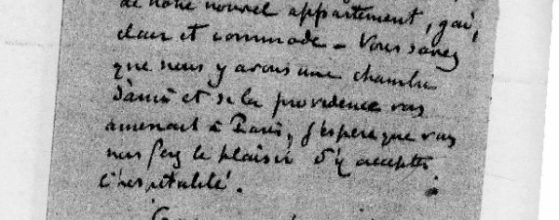 de notre nouvel appartement, gai,
clair et commode – Vous savez
que nous y avons une chambre
d'ami et si la providence vous
amenait à Paris, j'espère que vous
nous ferez le plaisir d'y accepter
l'hospitalité.